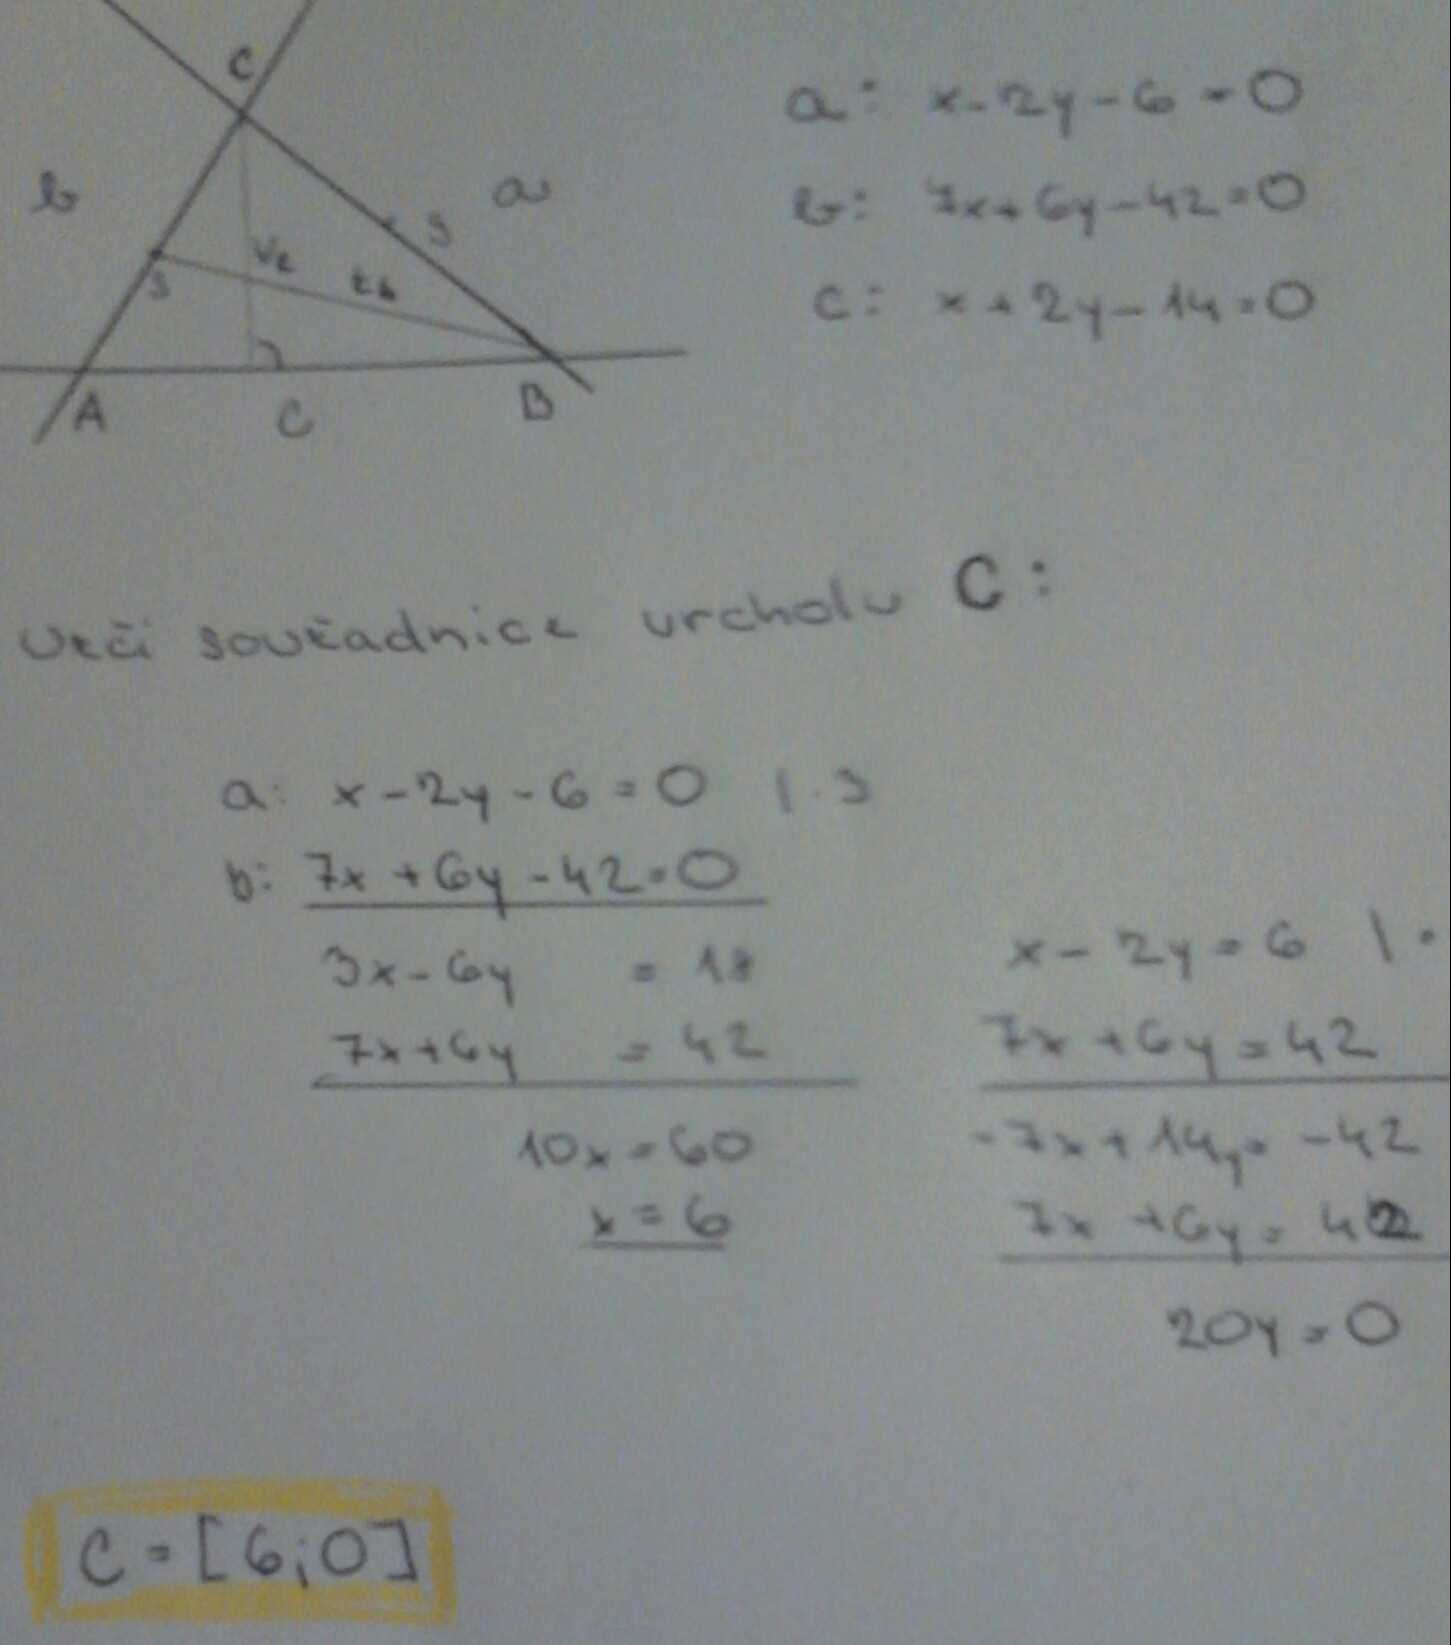 C
b
a
S
vc
S
tb
A
C
B
a: x-2y-6=0
b: 7x+6y-42=0
c: x+2y-14=0
Urči souřadnice vrcholu C:
a: x-2y-6=0 |.3
b: 7x+6y-42=0
3x-6y = 18
7x+6y = 42
10x=60
x=6
x-2y=6 |.
7x+6y=42
-7x+14y=-42
7x+6y=42
20y=0
C=[6;0]